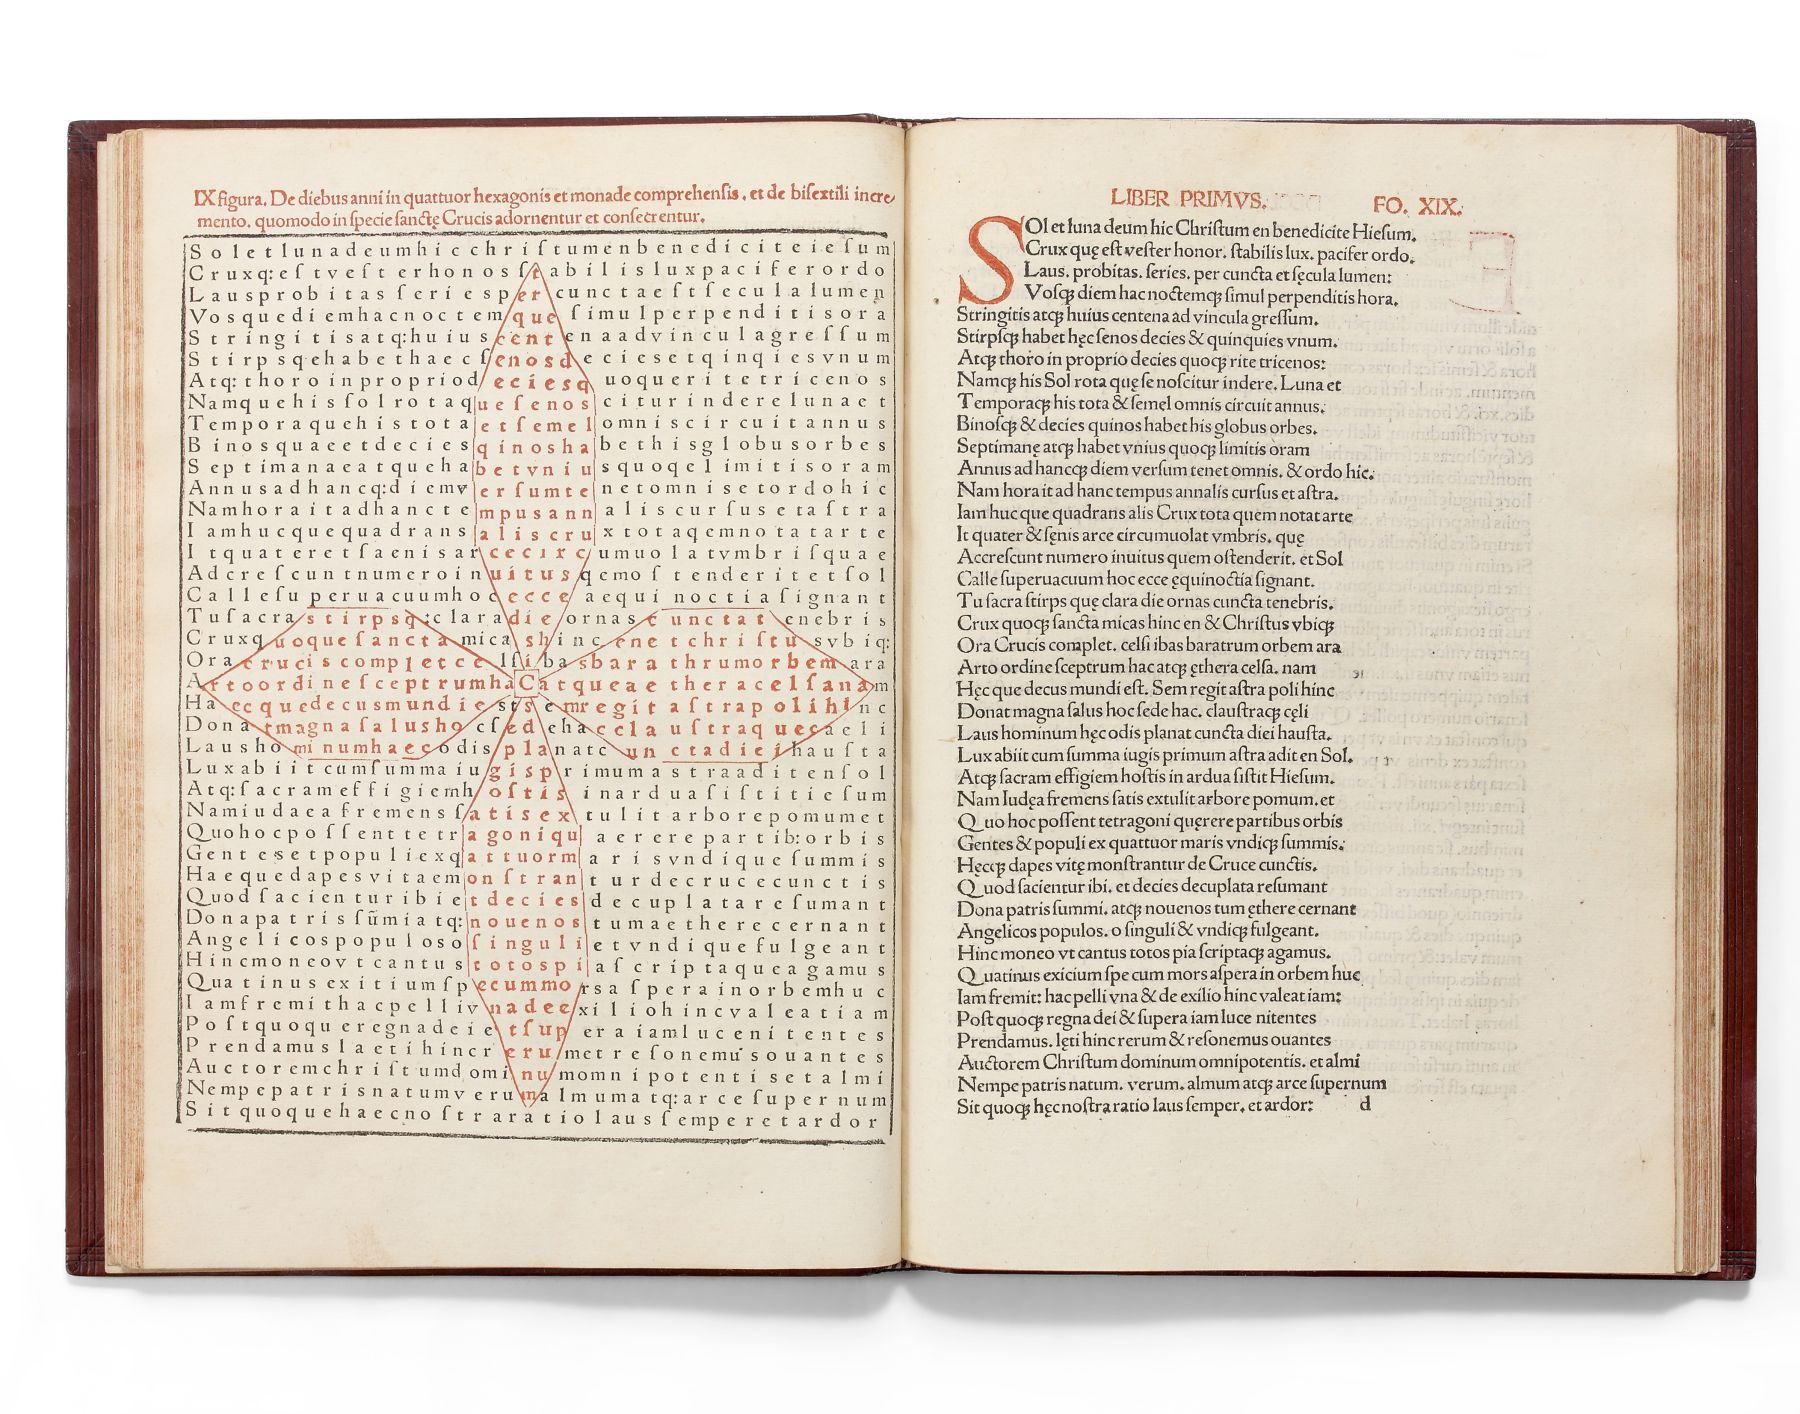 IX figura. De diebus anni in quattuor hexagonis et monade comprehensis. et de bisextili incre/
mento. quomodo in specie sanctę Crucis adornentur et consecrentur.
S o l e t l u n a d e u m h i c c h r i ſ t u m e n b e n e d i c i t e i e ſ u m
C r u x q: e ſ t v e ſ t e r h o n o s ſ t a b i l i s l u x p a c i f e r o r d o
L a u s p r o b i t a s ſ e r i e s p e r c u n c t a e ſ t ſ e c u l a l u m e n
V o s q u e d i e m h a c n o c t e m q u e ſ i m u l p e r p e n d i t i s o r a
S t r i n g i t i s a t q: h u i u s c e n t e n a a d v i n c u l a g r e ſ ſ u m
S t i r p s q e h a b e t h a e c ſ e n o s d e c i e s e t q i n q i e s v n u m
A t q: t h o r o i n p r o p r i o d e c i e s q u o q u e r i t e t r i c e n o s
N a m q u e h i s ſ o l r o t a q u e ſ e n o s c i t u r i n d e r e l u n a e t
T e m p o r a q u e h i s t o t a e t ſ e m e l o m n i s c i r c u i t a n n u s
B i n o s q u a e e t d e c i e s q i n o s h a b e t h i s g l o b u s o r b e s
S e p t i m a n a e a t q u e h a b e t v n i u s q u o q e l i m i t i s o r a m
A n n u s a d h a n c q: d i e m v e r ſ u m t e n e t o m n i s e t o r d o h i c
N a m h o r a i t a d h a n c t e m p u s a n n a l i s c u r ſ u s e t a ſ t r a
I a m h u c q u e q u a d r a n s a l i s c r u x t o t a q e m n o t a t a r t e
I t q u a t e r e t ſ a e n i s a r c e c i r c u m u o l a t v m b r i ſ q u a e
A d c r e ſ c u n t n u m e r o i n u i t u s q e m o ſ t e n d e r i t e t ſ o l
C a l l e ſ u p e r u a c u u m h o c e c c e a e q u i n o c t i a ſ i g n a n t
T u ſ a c r a ſ t i r p s q: c l a r a d i e o r n a s c u n c t a t e n e b r i s
C r u x q u o q u e ſ a n c t a m i c a s h i n c e n e t c h r i ſ t u s v b i q:
O r a c r u c i s c o m p l e t c e l ſ i b a s b a r a t h r u m o r b e m a r a
A r t o o r d i n e ſ c e p t r u m h a C a t q u e a e t h e r a c e l ſ a n a m
H a e c q u e d e c u s m u n d i e s t s e m r e g i t a ſ t r a p o l i h i n c
D o n a t m a g n a ſ a l u s h o c ſ e d e h a c c l a u ſ t r a q u e c a e l i
L a u s h o m i n u m h a e c o d i s p l a n a t c u n c t a d i e i h a u ſ t a
L u x a b i i t c u m ſ u m m a i u g i s p r i m u m a s t r a a d i t e n ſ o l
A t q: ſ a c r a m e f f i g i e m h o ſ t i s i n a r d u a ſ i ſ t i t i e ſ u m
N a m i u d a e a f r e m e n s ſ a t i s e x t u l i t a r b o r e p o m u m e t
Q u o h o c p o ſ ſ e n t t e t r a g o n i q u a e r e r e p a r t i b: o r b i s
G e n t e s e t p o p u l i e x q a t t u o r m a r i s v n d i q u e ſ u m m i s
H a e q u e d a p e s v i t a e m o n ſ t r a n t u r d e c r u c e c u n c t i s
Q u o d ſ a c i e n t u r i b i e t d e c i e s d e c u p l a t a r e ſ u m a n t
D o n a p a t r i s ſ ũ m i a t q: n o u e n o s t u m a e t h e r e c e r n a n t
A n g e l i c o s p o p u l o s o ſ i n g u l i e t v n d i q u e f u l g e a n t
H i n c m o n e o v t c a n t u s t o t o s p i a ſ c r i p t a q u e a g a m u s
Q u a t i n u s e x i t i u m ſ p e c u m m o r s a ſ p e r a i n o r b e m h u c
I a m f r e m i t h a c p e l l i v n a d e e x i l i o h i n c v a l e a t i a m
P o ſ t q u o q u e r e g n a d e i e t ſ u p e r a i a m l u c e n i t e n t e s
P r e n d a m u s l a e t i h i n c r e r u m e t r e ſ o n e m u s o u a n t e s
A u c t o r e m c h r i ſ t u m d o m i n u m o m n i p o t e n t i s e t a l m i
N e m p e p a t r i s n a t u m v e r u m a l m u m a t q: a r c e ſ u p e r n u m
S i t q u o q u e h a e c n o ſ t r a r a t i o l a u s ſ e m p e r e t a r d o r
LIBER PRIMVS. FO. XIX.
SOl et luna deum hic Chriſtum en benedicite Hieſum.
Crux quę eſt veſter honor. ſtabilis lux. pacifer ordo.
Laus. probitas. ſeries. per cuncta et ſęcula lumen:
Voſqꝫ diem hac noctemqꝫ ſimul perpenditis hora.
Stringitis atqꝫ huius centena ad vincula greſſum.
Stirpſqꝫ habet hęc ſenos decies & quinquies vnum.
Atqꝫ thoro in proprio decies quocꝫ rite tricenos:
Namqꝫ his Sol rota quę ſe noſcitur indere. Luna et
Temporaqꝫ his tota & ſemel omnis circuit annus.
Binoſqꝫ & decies quinos habet his globus orbes.
Septimanę atqꝫ habet vnius quoqꝫ limitis oram
Annus ad hancqꝫ diem verſum tenet omnis. & ordo hic.
Nam hora it ad hanc tempus annalis curſus et aſtra.
Iam huc que quadrans alis Crux tota quem notat arte
It quater & ſęnis arce circumuolat vmbris. quę
Accreſcunt numero inuitus quem oſtenderit. et Sol
Calle ſuperuacuum hoc ecce ęquinoctia ſignant.
Tu ſacra ſtirps quę clara die ornas cuncta tenebris.
Crux quoqꝫ ſancta micas hinc en & Chriſtus vbiqꝫ
Ora Crucis complet. celſi ibas baratrum orbem ara
Arto ordine ſceptrum hac atqꝫ ęthera celſa. nam
Hęc que decus mundi eſt. Sem regit aſtra poli hinc
Donat magna ſalus hoc ſede hac. clauſtraqꝫ cęli
Laus hominum hęc odis planat cuncta diei hauſta.
Lux abiit cum ſumma iugis primum aſtra adit en Sol.
Atqꝫ ſacram effigiem hoſtis in ardua ſiſtit Hieſum.
Nam Iudęa fremens ſatis extulit arbore pomum. et
Quo hoc poſſent tetragoni quęrere partibus orbis
Gentes & populi ex quattuor maris vndiqꝫ ſummis.
Hęcqꝫ dapes vitę monſtrantur de Cruce cunctis.
Quod ſacientur ibi. et decies decuplata reſumant
Dona patris ſummi. atqꝫ nouenos tum ęthere cernant
Angelicos populos. o ſinguli & vndiqꝫ fulgeant.
Hinc moneo vt cantus totos pia ſcriptaqꝫ agamus.
Quatinus exicium ſpe cum mors aſpera in orbem huc
Iam fremit: hac pelli vna & de exilio hinc valeat iam:
Poſt quoqꝫ regna dei & ſupera iam luce nitentes
Prendamus. lęti hinc rerum & reſonemus ouantes
Auctorem Chriſtum dominum omnipotentis. et almi
Nempe patris natum. verum. almum atqꝫ arce ſupernum
Sit quoqꝫ hęc noſtra ratio laus ſemper. et ardor: d